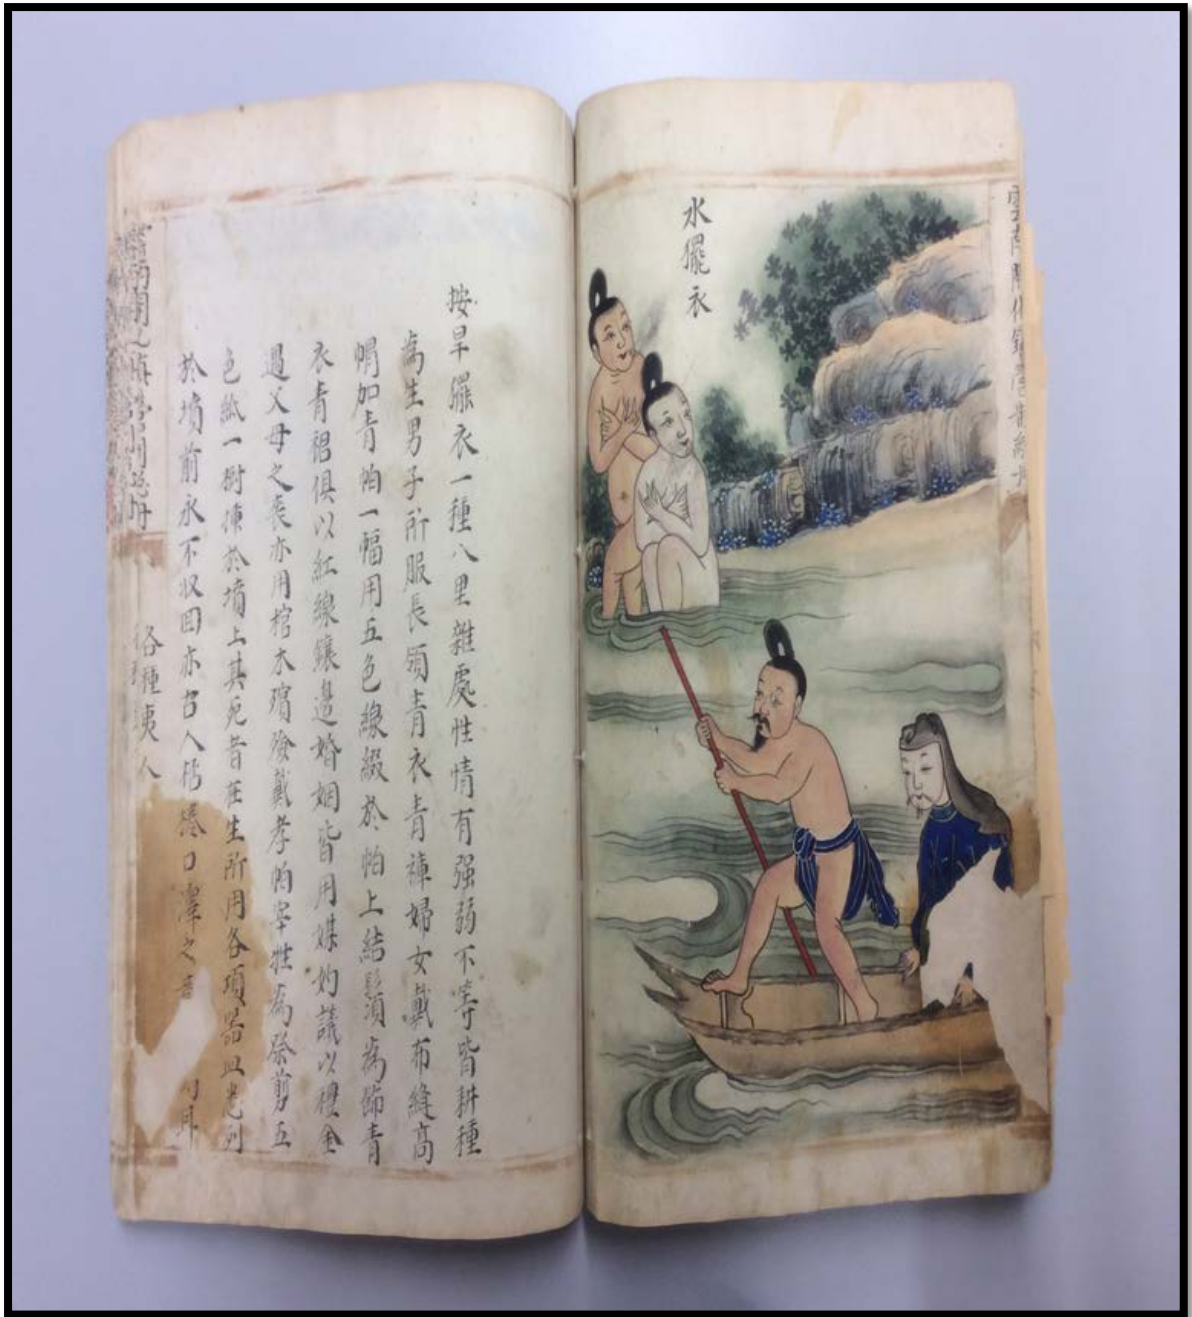 雲南開化鎮
水擺衣
按旱擺衣一種八里雜處性情有强弱不等皆耕種
為生男子所服長領青衣青褲婦女戴布縫高
幘加青帕一幅用五色線綴於帕上結鬚為飾青
衣青裙俱以紅線鑲邊婚姻皆用媒妁議以禮金
過父母之喪亦用棺木殯殮戴孝帕宰牲為祭剪五
色紙一樹揷於墳上其死者在生所用各項器皿悉列
於墳前永不収回亦古人桮棬口澤之
各種夷人